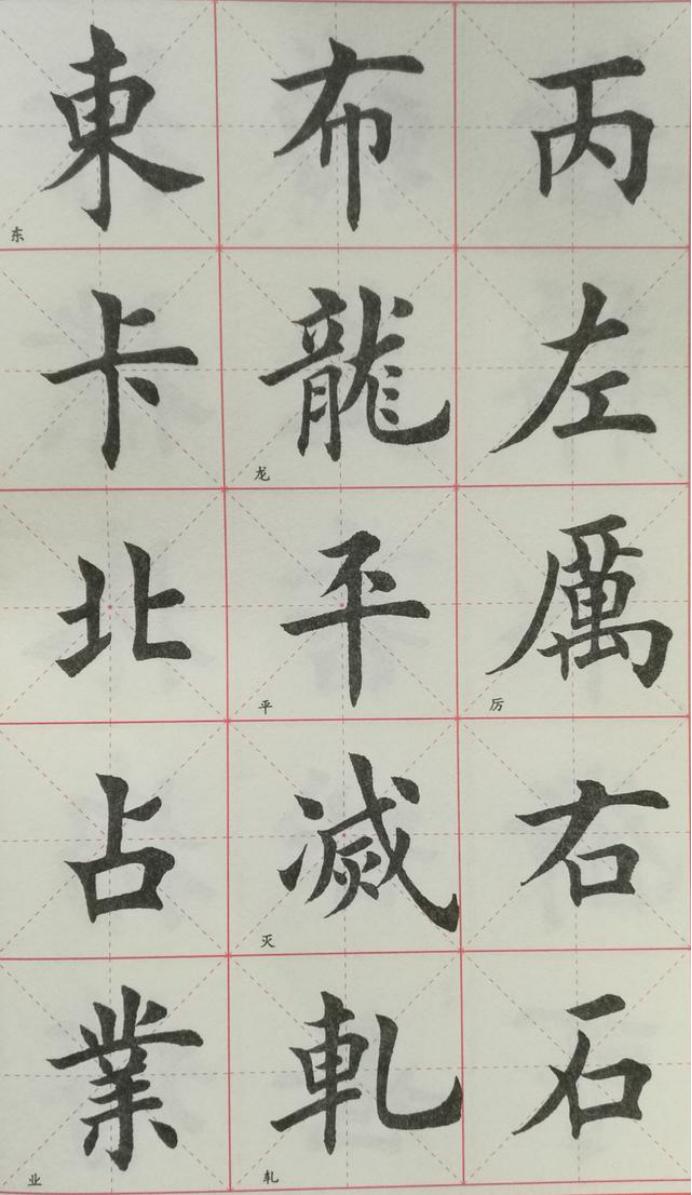 丙
左
厲 厉
右
石
布
龍 龙
平 平
滅 灭
軋 轧
東 东
卡
北
占
業 业